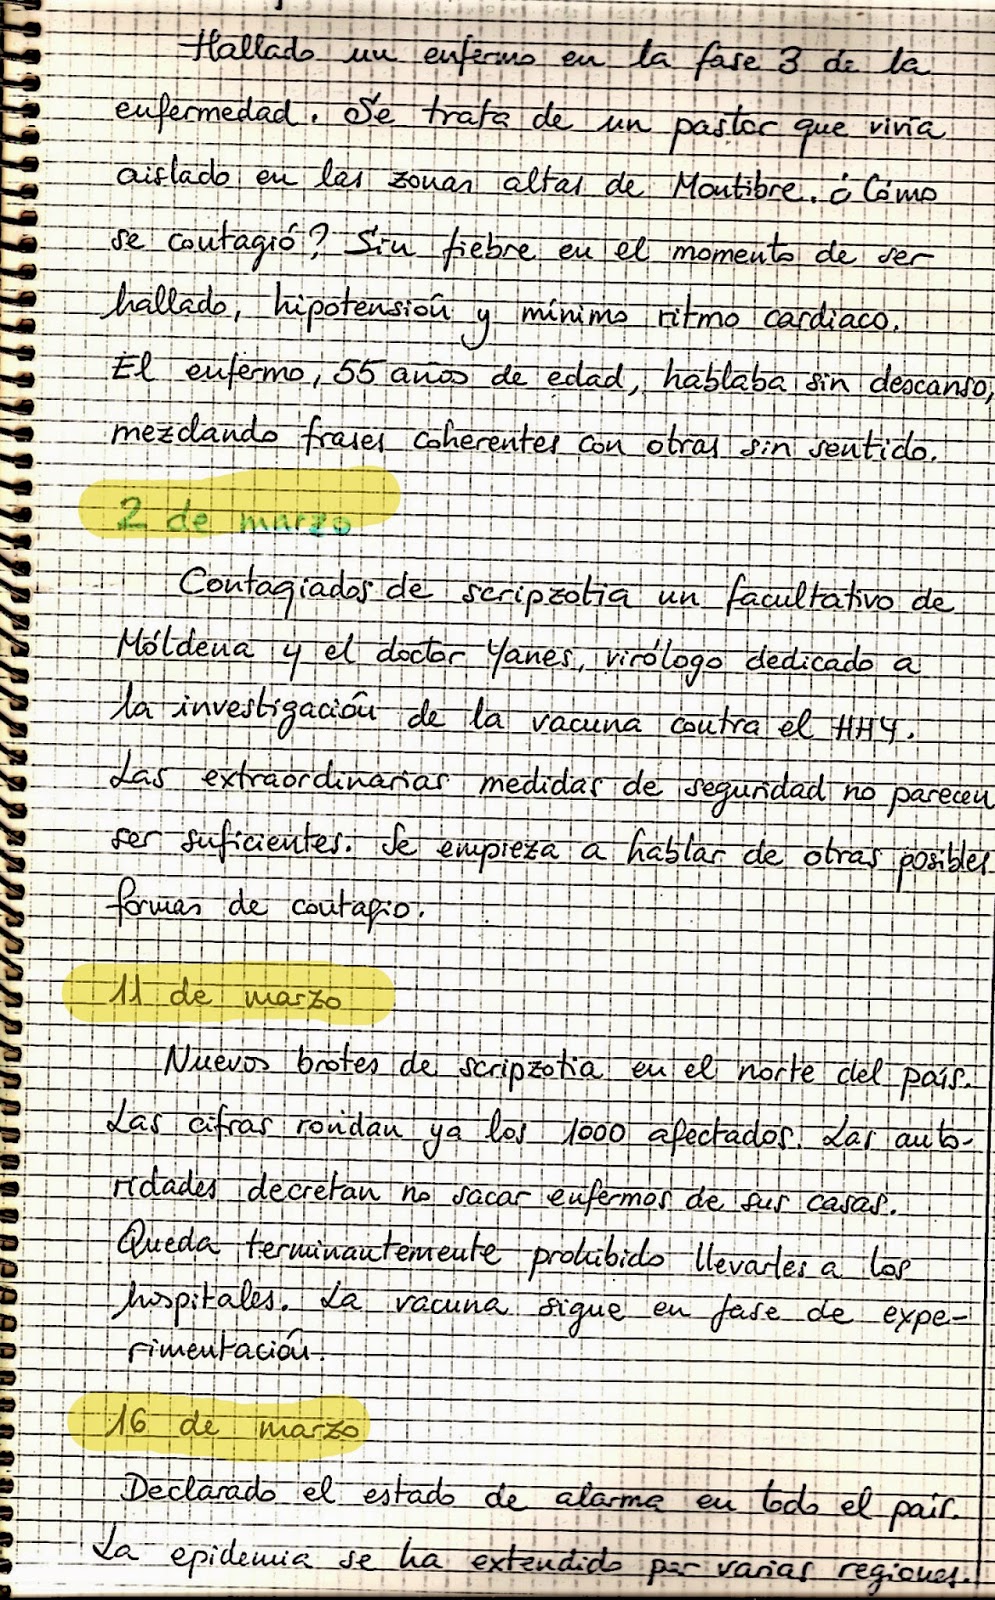 Hallado un enfermo en la fase 3 de la
enfermedad. Se trata de un pastor que vivía
aislado en las zonas altas de Montibre. ¿Cómo
se contagió? Sin fiebre en el momento de ser
hallado, hipotensión y mínimo ritmo cardiaco.
El enfermo, 55 años de edad, hablaba sin descanso,
mezclando frases coherentes con otras sin sentido.
2 de marzo
Contagiados de scripzotia un facultativo de
Móldena y el doctor Yanes, virólogo dedicado a
la investigación de la vacuna contra el HHY.
Las extraordinarias medidas de seguridad no parecen
ser suficientes. Se empieza a hablar de otras posibles
formas de contagio.
11 de marzo
Nuevos brotes de scripzotia en el norte del país.
Las cifras rondan ya los 1000 afectados. Las auto-
ridades decretan no sacar enfermos de sus casas.
Queda terminantemente prohibido llevarles a los
hospitales. La vacuna sigue en fase de expe-
rimentación.
16 de marzo
Declarado el estado de alarma en todo el país.
La epidemia se ha extendido por varias regiones.